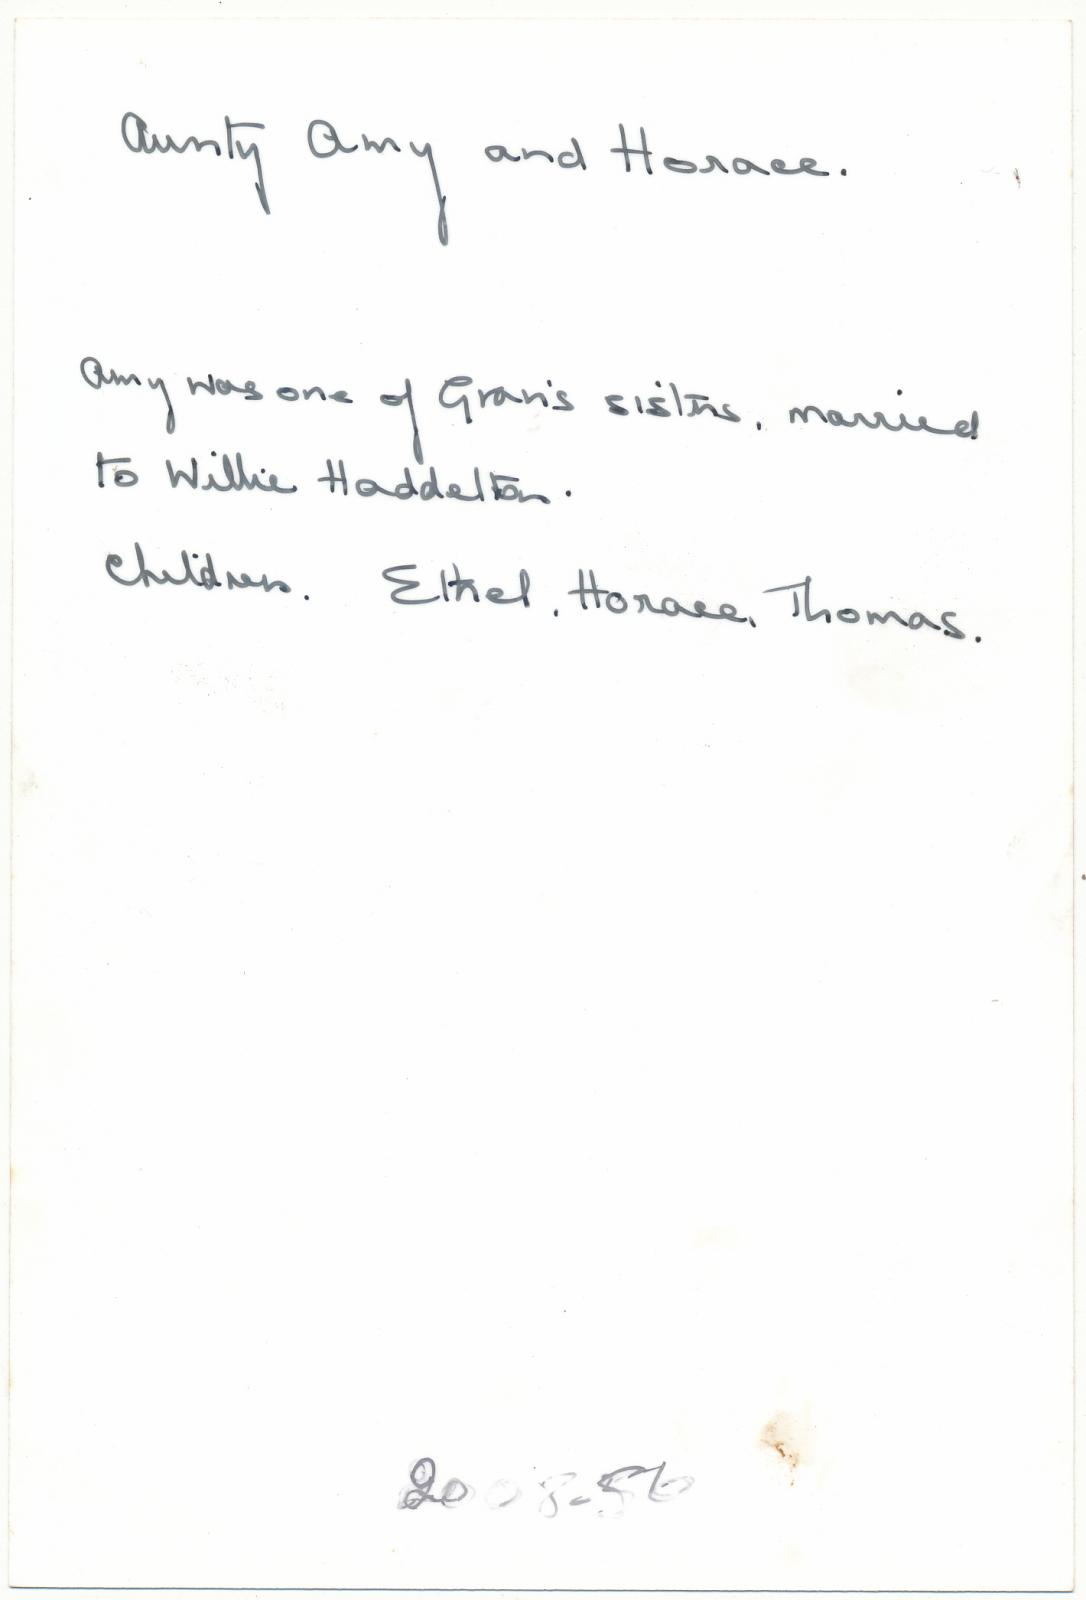 Aunty Amy and Horace.
Amy was one of Gran's sisters, married
to Willie Haddelton.
Children. Ethel, Horace, Thomas.
2008-56